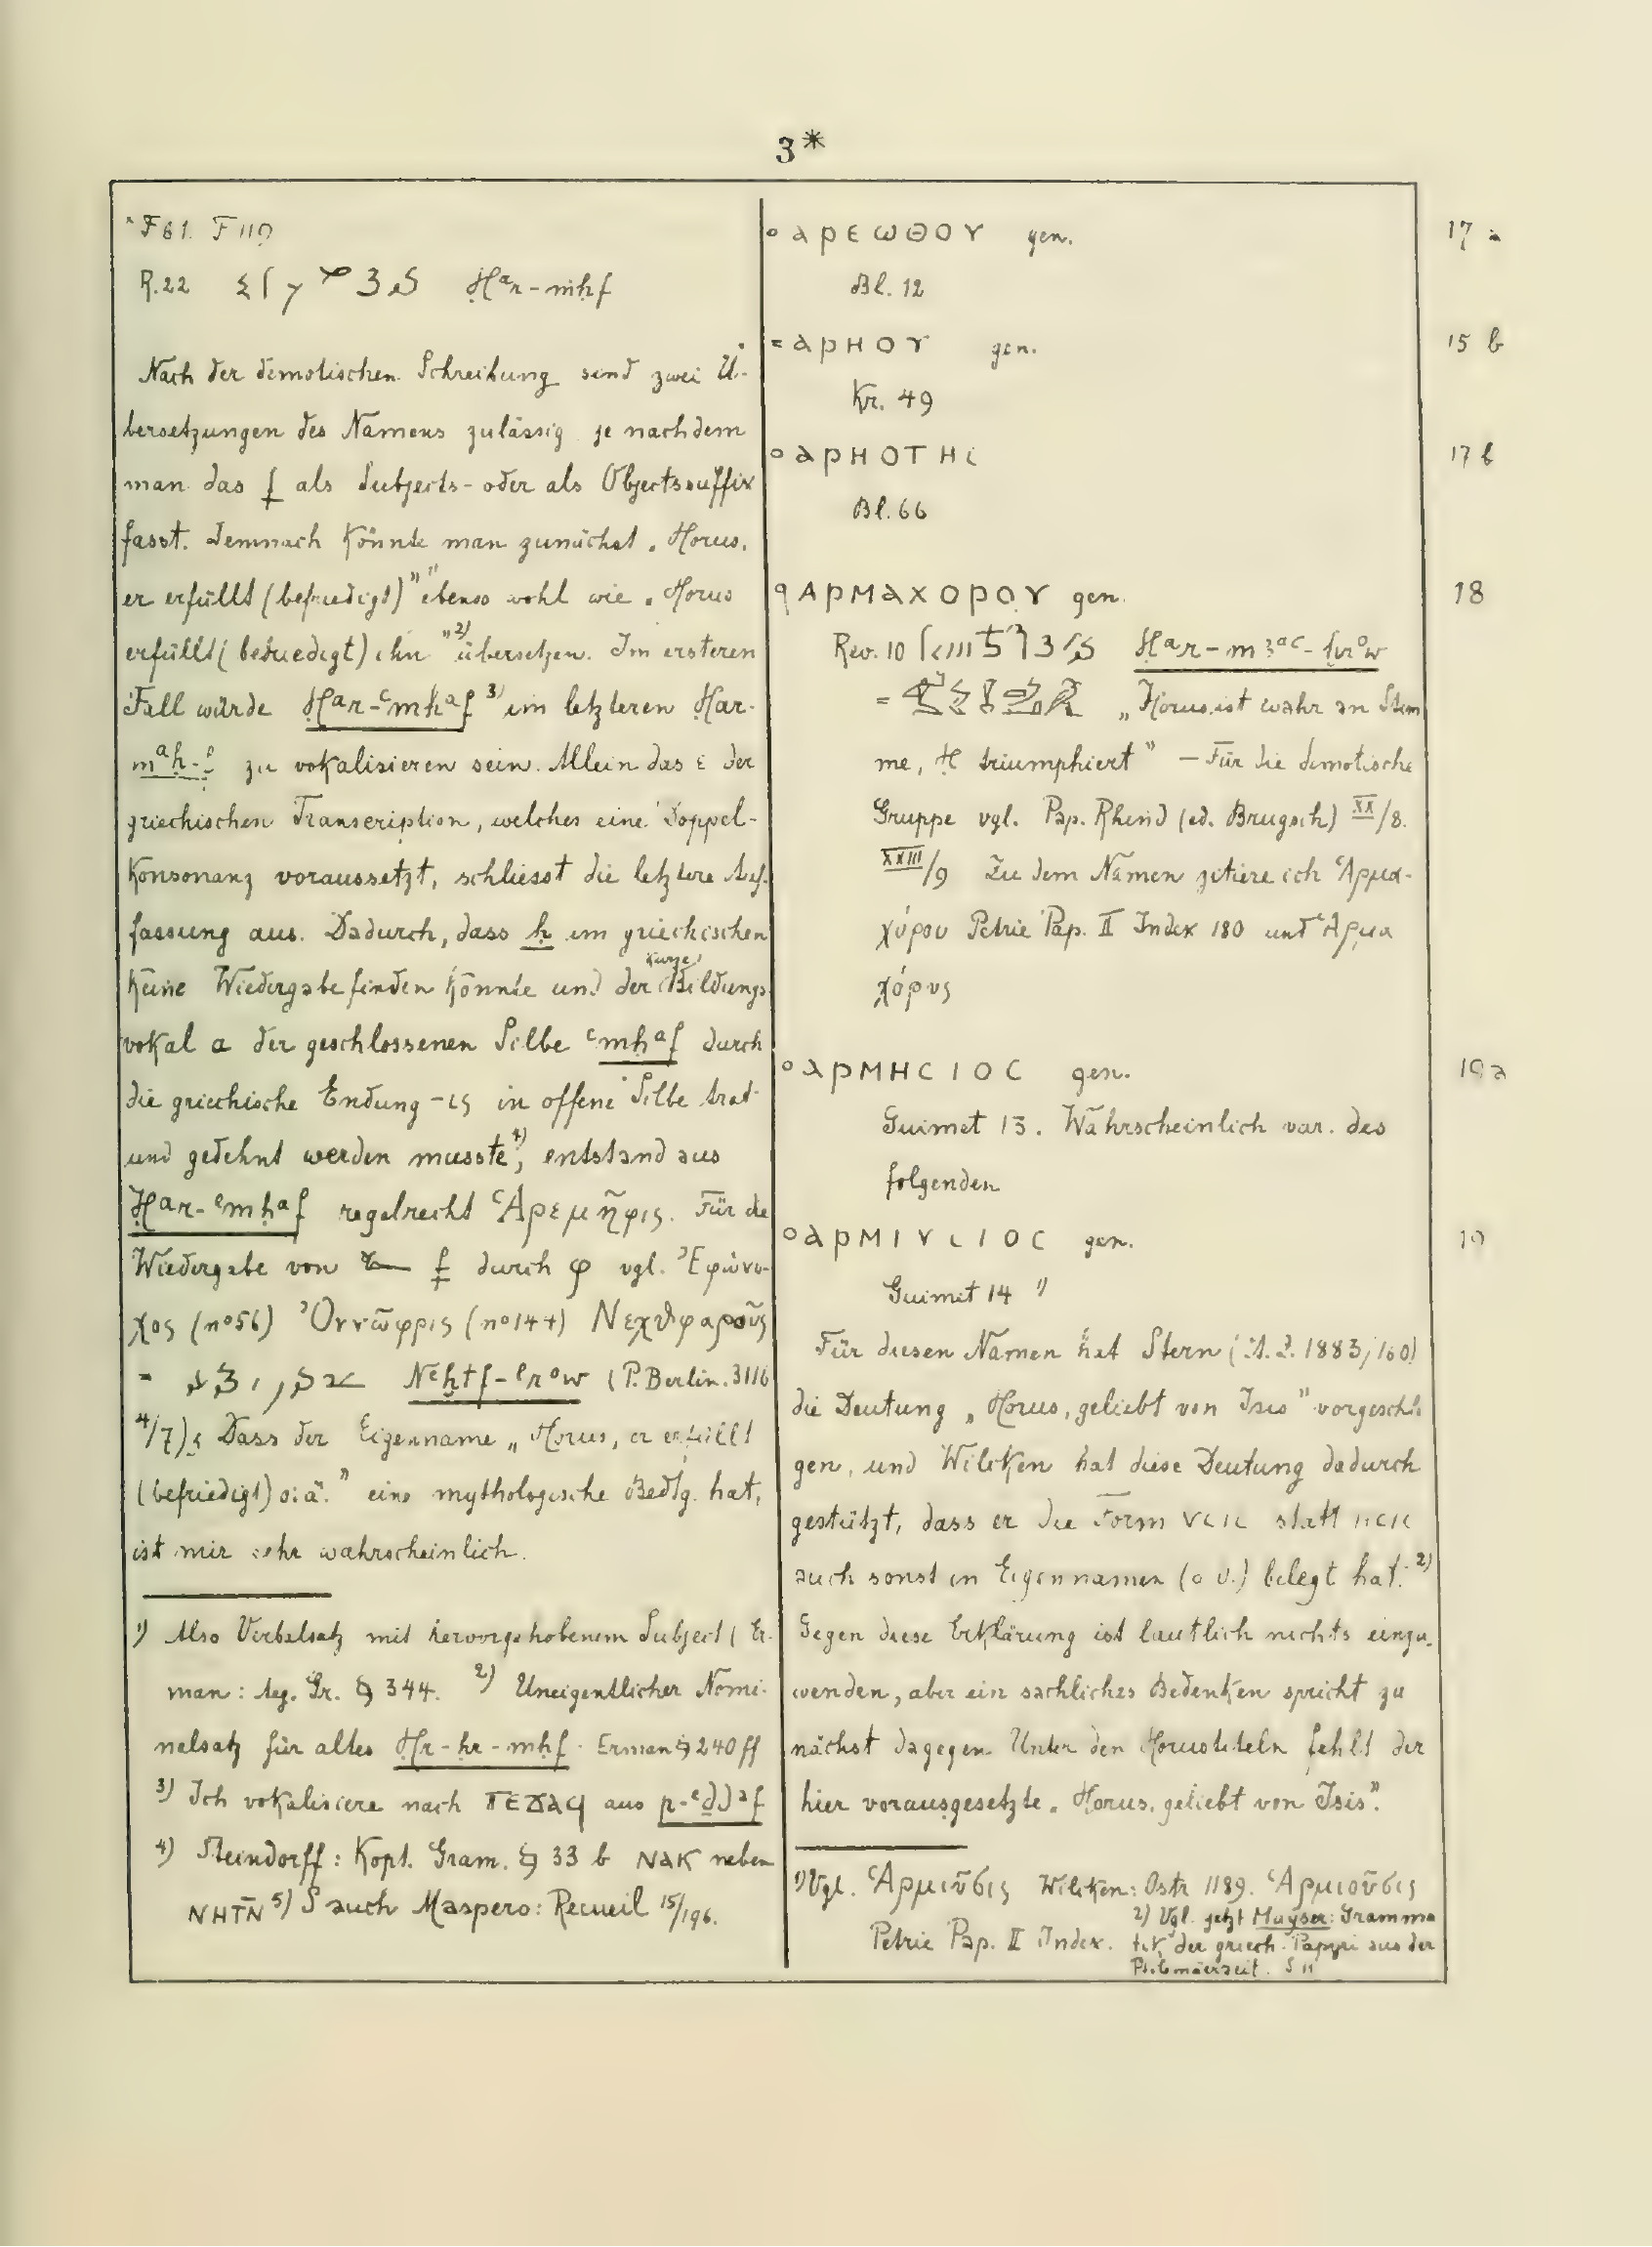 3*
F 61. F 119
R. 22 Ḥᵃr-mḥf
Nach der demotischen Schreibung sind zwei Ü-
bersetzungen des Namens zulässig je nachdem
man das f als Subjects- oder als Objectssuffix
fasst. Demnach könnte man zunächst „Horus,
er erfüllt (befriedigt)" ebenso wohl wie „Horus
erfüllt (befriedigt) ihn"²⁾ übersetzen. Im ersteren
Fall würde Ḥᵃr-ᵉmḥᵃf ³⁾ im letzteren Ḥar-
mᵃḥ-f zu vokalisieren sein. Allein das ε der
griechischen Transcription, welches eine Doppel-
konsonanz voraussetzt, schliesst die letztere Auf-
fassung aus. Dadurch, dass ḥ im griechischen
keine Wiedergabe finden könnte und der kurze Bildungs-
vokal a der geschlossenen Silbe ᵉmḥᵃf durch
die griechische Endung -ις in offene Silbe trat
und gedehnt werden musste⁴⁾, entstand aus
Ḥar-ᵉmḥᵃf regelrecht Ἁρεμῆφις. Für die
Wiedergabe von f durch φ vgl. Ἐφώνυ-
χος (nº 56) Ὀννῶφρις (nº 144) Νεχθφαροῦς
= Nᵉḫtf-ᵉrᵒw (P. Berlin. 3116
4/7) Dass der Eigenname „Horus, er erfüllt
(befriedigt) o. ä." eine mythologische Bedtg. hat,
ist mir sehr wahrscheinlich.
¹⁾ Also Verbalsatz mit hervorgehobenem Subject (Er-
man: Aeg. Gr. § 344. ²⁾ Uneigentlicher Nomi-
nalsatz für altes Ḥr-ḥr-mḥf. Erman § 240 ff
³⁾ Ich vokalisiere nach ΠΕϪΑϤ aus p-ᵉḏdᵃf
⁴⁾ Steindorff: Kopt. Gram. § 33 b ΝΑΚ neben
ΝΗΤΝ̄ ⁵⁾ S auch Maspero: Recueil 15/196.
° ΑΡΕΩΘΟΥ gen. 17 a
Bl. 12
ΑΡΗΟΥ gen. 15 b
Kr. 49
° ΑΡΗΟΤΗΙ 17 b
Bl. 66
ΑΡΜΑΧΟΡΟΥ gen. 18
Rev. 10 Ḥᵃr-m3ᵃᶜ-ḫrᵒw
= „Horus ist wahr an Stim
me, H triumphiert" — Für die demotische
Gruppe vgl. Pap. Rhind (ed. Brugsch) XX/8.
XXIII/9 Zu dem Namen zitiere ich Ἁρμα-
χόρου Petrie Pap. II Index 180 und Ἁρμα
χόρυς
° ΑΡΜΗCΙΟC gen. 19 a
Guimet 13. Wahrscheinlich var. des
folgenden
° ΑΡΜΙΥCΙΟC gen. 19
Guimet 14 ¹⁾
Für diesen Namen hat Stern (A. Z. 1883/160)
die Deutung „Horus, geliebt von Isis" vorgeschla
gen, und Wilcken hat diese Deutung dadurch
gestützt, dass er die Form statt
auch sonst in Eigennamen (o. v.) belegt hat.²⁾
Gegen diese Erklärung ist lautlich nichts einzu-
wenden, aber ein sachliches Bedenken spricht zu
nächst dagegen. Unter den Horustiteln fehlt der
hier vorausgesetzte „Horus, geliebt von Isis".
¹⁾ Vgl. Ἁρμιῦσις Wilcken: Ostr 1189. Ἁρμιοῦσις
Petrie Pap. II Index.
2) Vgl. jetzt Mayser: Gramma
tik der griech. Papyri aus der
Ptolemäerzeit. S 11